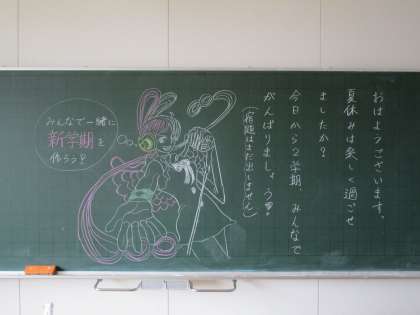 おはようございます。
夏休みは楽しく過ごせ
ましたか？
今日から2学期、みんなで
がんばりましょう
（宿題はまだ出しません）
みんなで一緒に
新学期を
作ろう？